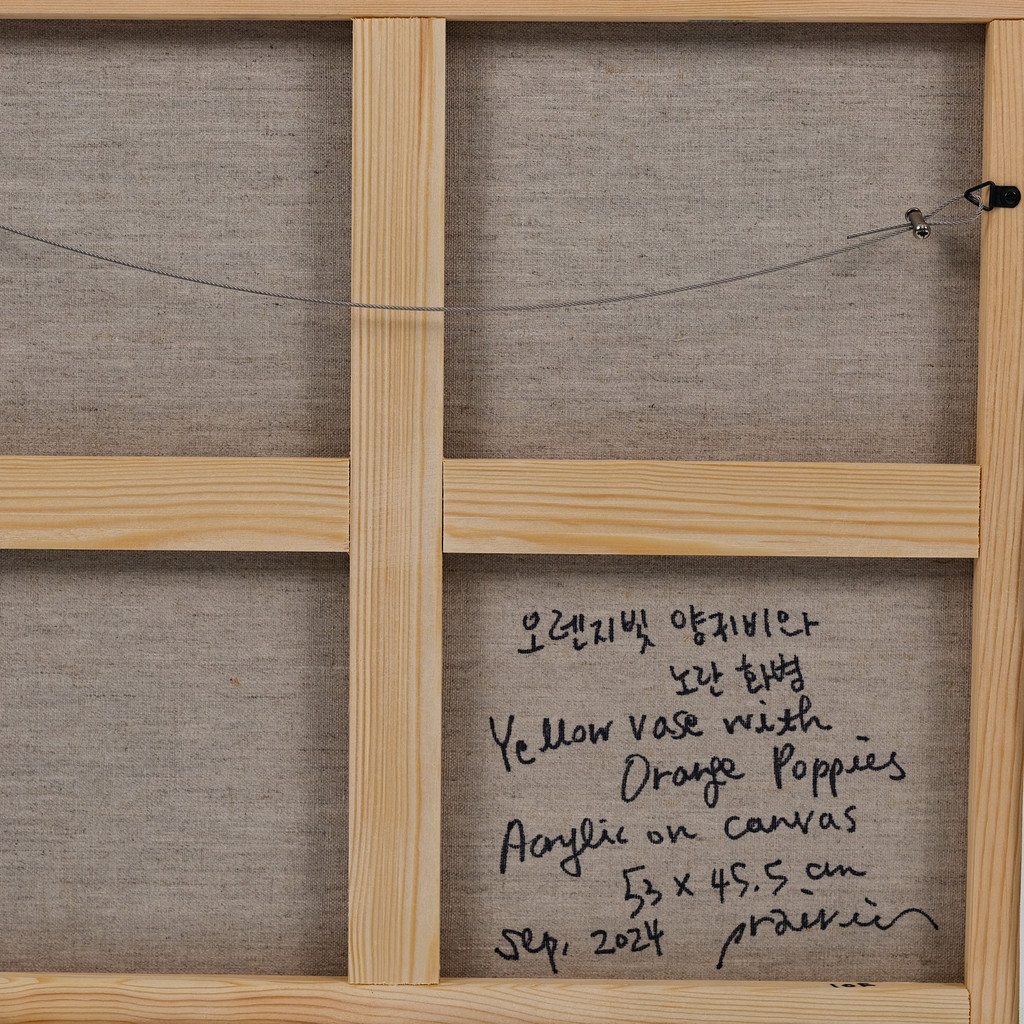 오렌지빛 양귀비와
노란 화병
Yellow vase with
Orange Poppies
Acrylic on canvas
53 x 45.5 cm
Sep. 2024